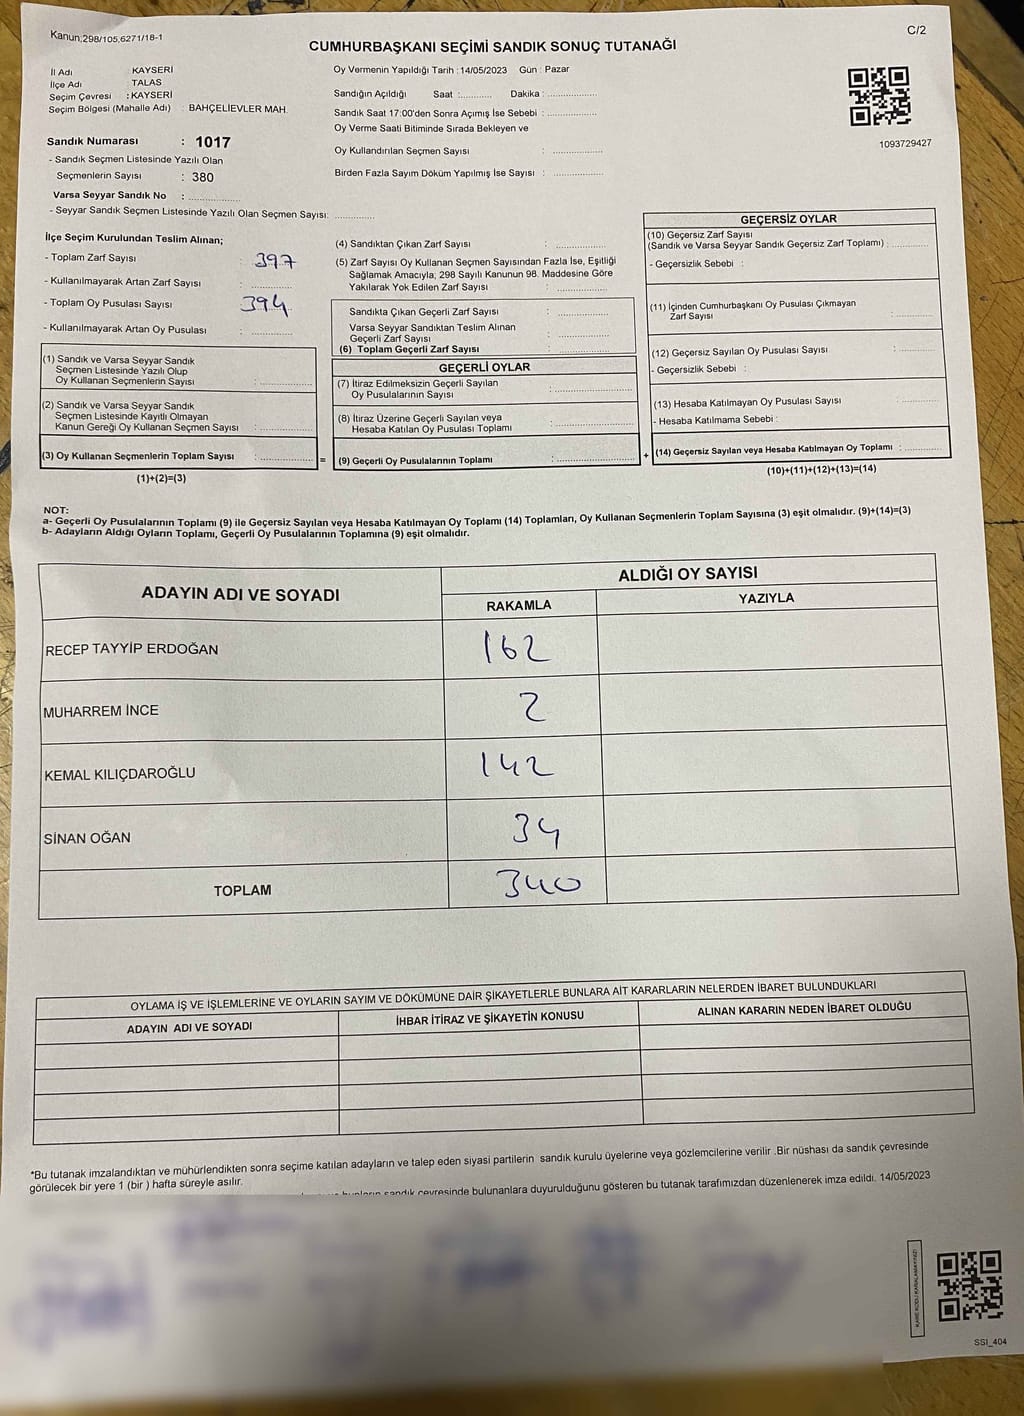 Kanun;298/105,6271/18-1
C/2
CUMHURBAŞKANI SEÇİMİ SANDIK SONUÇ TUTANAĞI
İl Adı : KAYSERİ
İlçe Adı : TALAS
Seçim Çevresi : KAYSERİ
Seçim Bölgesi (Mahalle Adı) : BAHÇELİEVLER MAH.
Sandık Numarası : 1017
- Sandık Seçmen Listesinde Yazılı Olan
Seçmenlerin Sayısı : 380
Varsa Seyyar Sandık No : ..................
- Seyyar Sandık Seçmen Listesinde Yazılı Olan Seçmen Sayısı: ..............
Oy Vermenin Yapıldığı Tarih : 14/05/2023 Gün : Pazar
Sandığın Açıldığı Saat :........... Dakika : ..................
Sandık Saat 17:00'den Sonra Açımış İse Sebebi : ..................
Oy Verme Saati Bitiminde Sırada Bekleyen ve
Oy Kullandırılan Seçmen Sayısı : ..................
Birden Fazla Sayım Döküm Yapılmış İse Sayısı : ..................
1093729427
İlçe Seçim Kurulundan Teslim Alınan;
- Toplam Zarf Sayısı : 397
- Kullanılmayarak Artan Zarf Sayısı : ..............
- Toplam Oy Pusulası Sayısı : 394
- Kullanılmayarak Artan Oy Pusulası : ..............
(1) Sandık ve Varsa Seyyar Sandık
Seçmen Listesinde Yazılı Olup
Oy Kullanan Seçmenlerin Sayısı : ..................
(2) Sandık ve Varsa Seyyar Sandık
Seçmen Listesinde Kayıtlı Olmayan
Kanun Gereği Oy Kullanan Seçmen Sayısı : ..................
(3) Oy Kullanan Seçmenlerin Toplam Sayısı : ..................
(1)+(2)=(3)
=
(4) Sandıktan Çıkan Zarf Sayısı : ..................
(5) Zarf Sayısı Oy Kullanan Seçmen Sayısından Fazla İse, Eşitliği
Sağlamak Amacıyla; 298 Sayılı Kanunun 98. Maddesine Göre
Yakılarak Yok Edilen Zarf Sayısı : ..................
Sandıkta Çıkan Geçerli Zarf Sayısı : ..................
Varsa Seyyar Sandıktan Teslim Alınan
Geçerli Zarf Sayısı : ..................
(6) Toplam Geçerli Zarf Sayısı : ..................
GEÇERLİ OYLAR
(7) İtiraz Edilmeksizin Geçerli Sayılan
Oy Pusulalarının Sayısı : ..................
(8) İtiraz Üzerine Geçerli Sayılan veya
Hesaba Katılan Oy Pusulası Toplamı : ..................
(9) Geçerli Oy Pusulalarının Toplamı : ..................
+
GEÇERSİZ OYLAR
(10) Geçersiz Zarf Sayısı
(Sandık ve Varsa Seyyar Sandık Geçersiz Zarf Toplamı) : ..............
- Geçersizlik Sebebi :
(11) İçinden Cumhurbaşkanı Oy Pusulası Çıkmayan
Zarf Sayısı : ..............
(12) Geçersiz Sayılan Oy Pusulası Sayısı : ..............
- Geçersizlik Sebebi :
(13) Hesaba Katılmayan Oy Pusulası Sayısı : ..............
- Hesaba Katılmama Sebebi :
(14) Geçersiz Sayılan veya Hesaba Katılmayan Oy Toplamı : ..............
(10)+(11)+(12)+(13)=(14)
NOT:
a- Geçerli Oy Pusulalarının Toplamı (9) ile Geçersiz Sayılan veya Hesaba Katılmayan Oy Toplamı (14) Toplamları, Oy Kullanan Seçmenlerin Toplam Sayısına (3) eşit olmalıdır. (9)+(14)=(3)
b- Adayların Aldığı Oyların Toplamı, Geçerli Oy Pusulalarının Toplamına (9) eşit olmalıdır.
ADAYIN ADI VE SOYADI ALDIĞI OY SAYISI
RAKAMLA YAZIYLA
RECEP TAYYİP ERDOĞAN 162
MUHARREM İNCE 2
KEMAL KILIÇDAROĞLU 142
SİNAN OĞAN 34
TOPLAM 340
OYLAMA İŞ VE İŞLEMLERİNE VE OYLARIN SAYIM VE DÖKÜMÜNE DAİR ŞİKAYETLERLE BUNLARA AİT KARARLARIN NELERDEN İBARET BULUNDUKLARI
ADAYIN ADI VE SOYADI İHBAR İTİRAZ VE ŞİKAYETİN KONUSU ALINAN KARARIN NEDEN İBARET OLDUĞU
*Bu tutanak imzalandıktan ve mühürlendikten sonra seçime katılan adayların ve talep eden siyasi partilerin sandık kurulu üyelerine veya gözlemcilerine verilir .Bir nüshası da sandık çevresinde
görülecek bir yere 1 (bir ) hafta süreyle asılır.
sandık çevresinde bulunanlara duyurulduğunu gösteren bu tutanak tarafımızdan düzenlenerek imza edildi. 14/05/2023
SSI_404